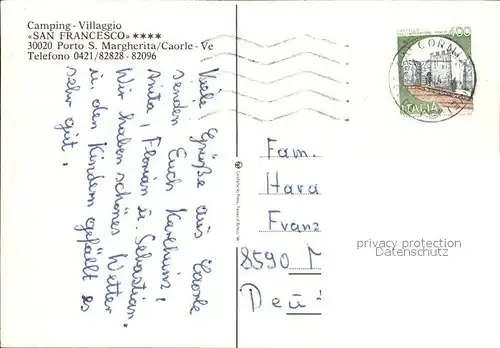 Camping - Villaggio
«SAN FRANCESCO» ★★★★
30020 Porto S. Margherita/Caorle - Ve
Telefono 0421/82828 - 82096
Viele Grüße aus Caorle
senden Euch Karlheinz,
Anita, Florian u. Sebastian.
Wir haben schönes Wetter
u. den Kindern gefällt es
sehr gut.
400
ITALIA
Fam.
Hara
Franz
8590 M
Deu
privacy protection
Datenschutz